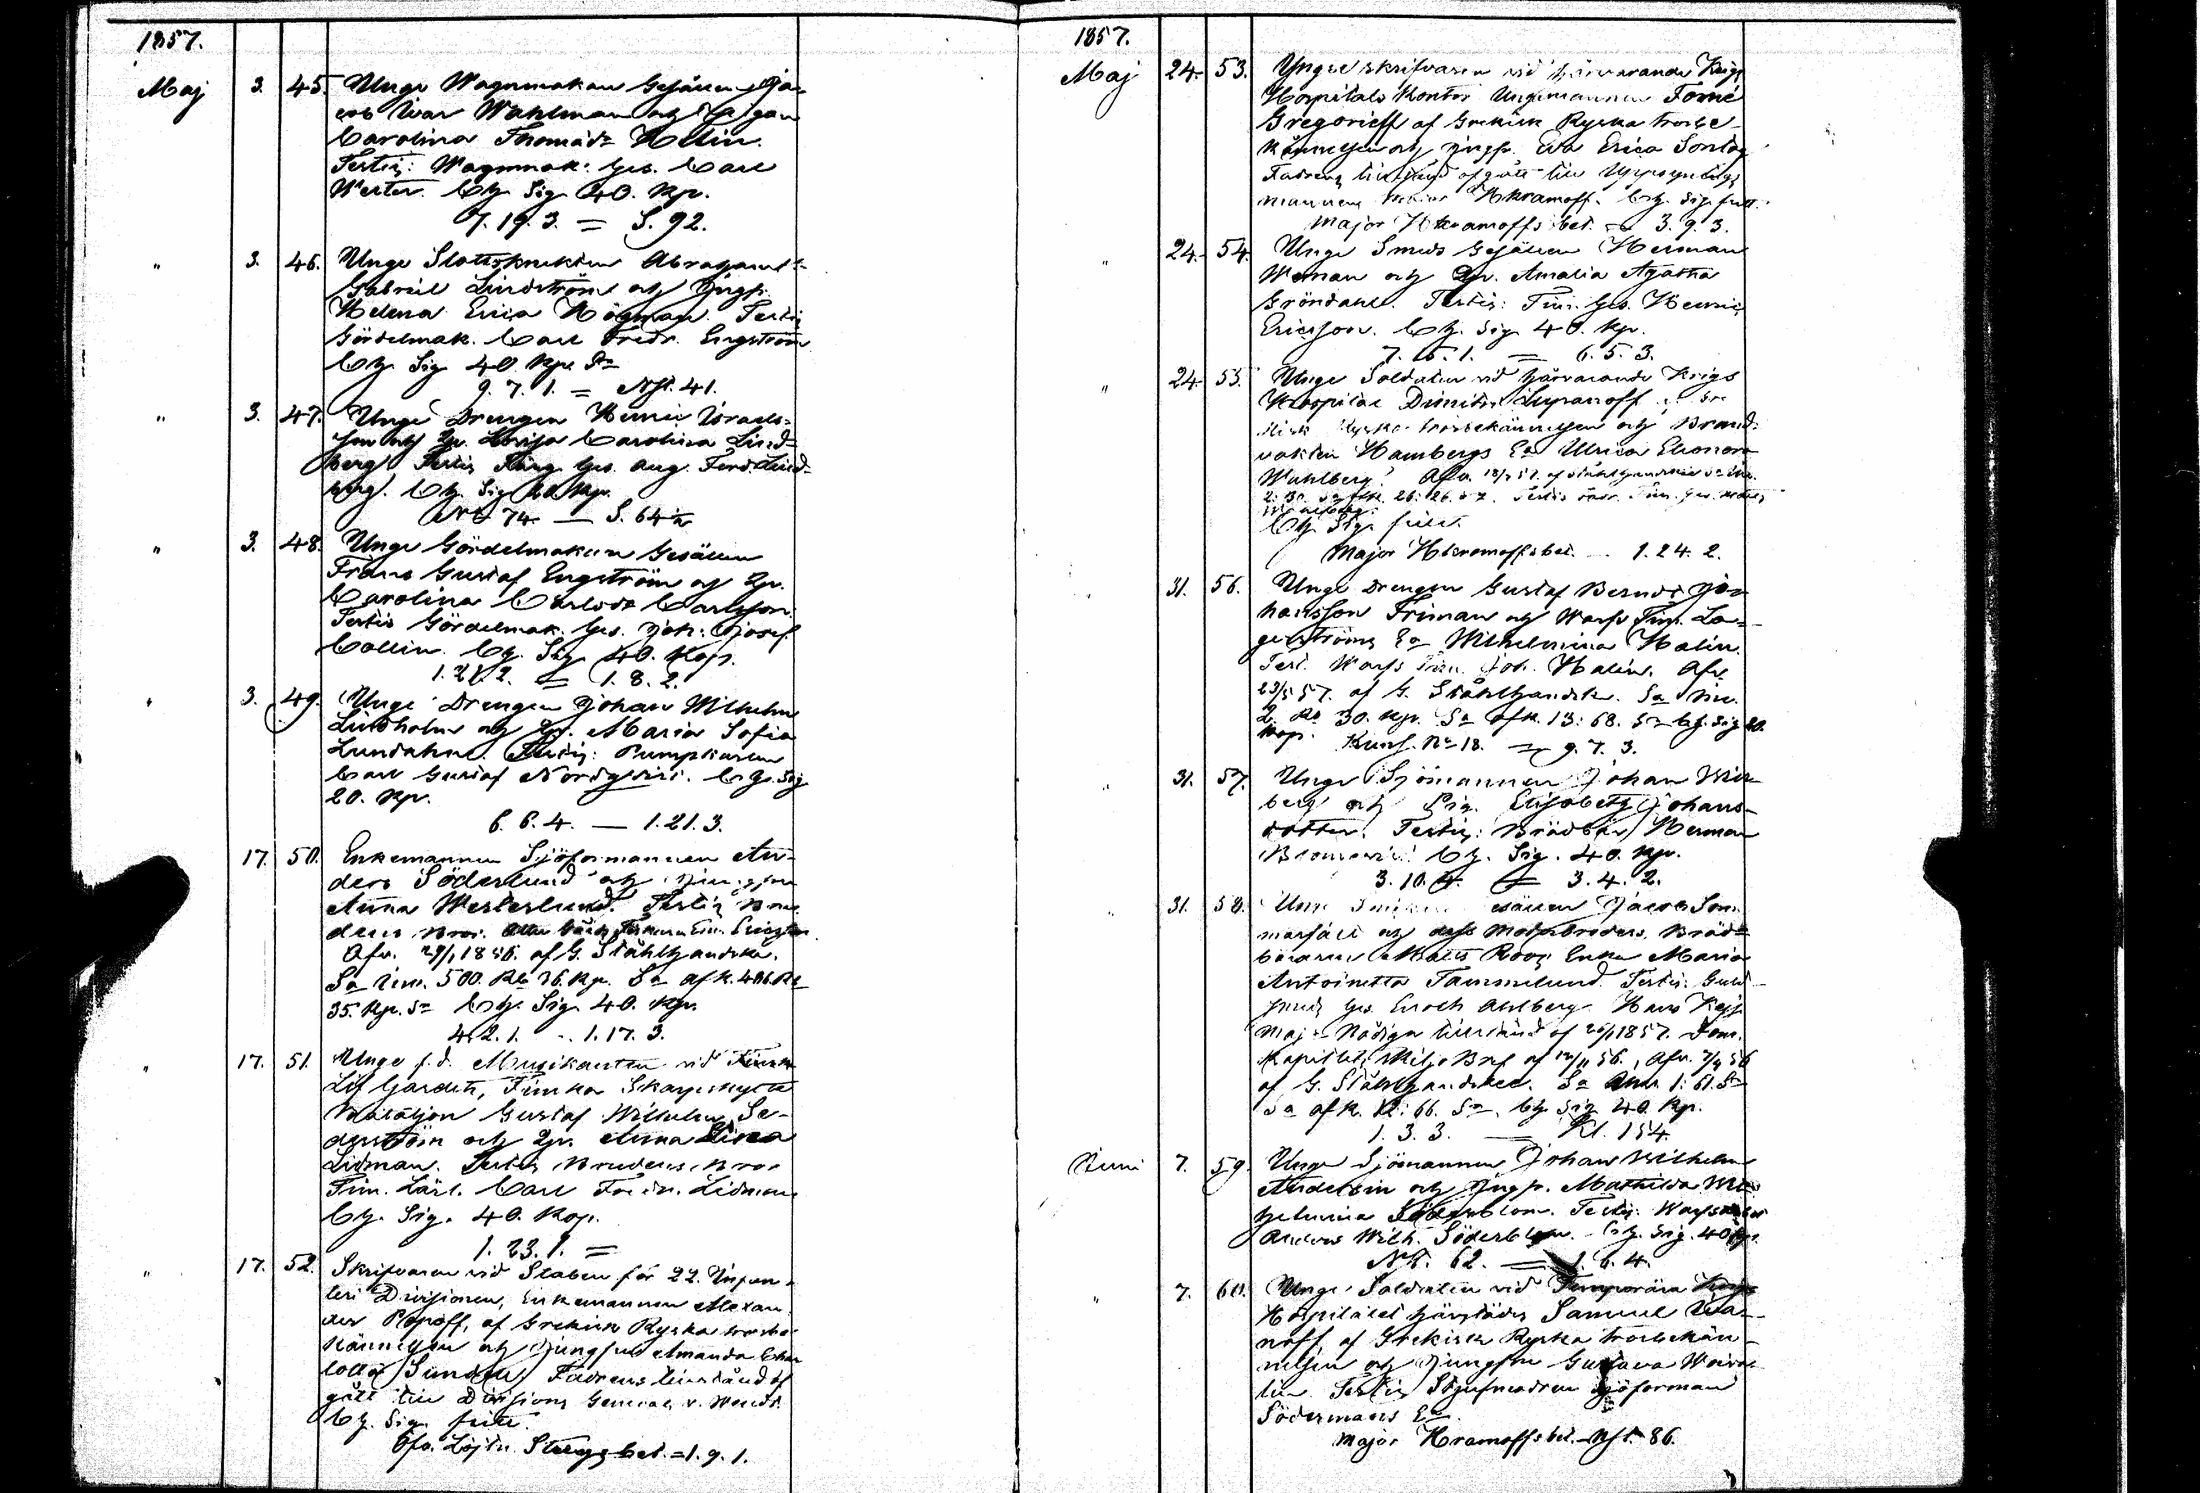 1857.
Maj 3. 45. Unge Wagnmakare Gesällen Ja-
cob Iwar Wahlman och Pigan
Carolina Thomasdr Helin.
Testis: Wagnmak: Ges. Carl
Wester. Ctz. Sig 40. Kp.
7. 19. 3. = S. 92.
" 3. 46. Unge Slottsknekten Abraham
Gabriel Lindström och Jungf.
Helena Erica Högman. Testis
Gördelmak. Carl Fredr. Engström
Ctz. Sig 40 Kp. Sr
9. 7. 1. = 41.
" 3. 47. Unge Drengen Henric Israels-
son och Lovisa Carolina Lind-
berg. Testis Ges. Aug. Ferd. Lind-
berg. Ctz. Sig 20 Kp.
74. — S. 64
" 3. 48. Unge Gördelmakare Gesällen
Frans Gustaf Engström och
Carolina Carlsson.
Testis Gördelmak. Ges. Joh: Josef
Collin. Ctz. Sig 40. Kop.
1. 21. 2. = 1. 8. 2.
" 3. 49. Unge Drengen Johan Wilhelm
Lindholm och Maria Sofia
Lundahn. Testis: Pumpkaren
Carl Gustaf Nordqvist. Ctz. Sig
20. Kp.
6. 6. 4. — 1. 21. 3.
17. 50. Enkemannen Sjöformannen An-
ders Söderlund och Jungfrun
Anna Westerlund. Testis Bru-
dens Bror.
Afv. 29/1 1856. af G. Stålhandske.
Sa Inv. 500. Rb 36. Kp. Sa afk. 486. Rb
35. Kp. Sr Ctz. Sig 40. Kp.
4. 2. 1. - 1. 17. 3.
17. 51. Unge f.d. Musikanten vid Finska
Lif Gardets, Finska Skarpskytte
Bataljon Gustaf Wilhelm Se-
derström och Anna Lisa
Lidman. Testis Brudens Bror
Tim. Lärl. Carl Lidman
Ctz. Sig. 40. Kop.
1. 23. 1. =
" 17. 52. Skrifvaren vid Staben för 22. Infan-
teri Divisionen, Enkemannen Alexan-
der Popoff, af Grekisk Ryska trosbe-
kännelsen och Jungfrun Amanda Char-
lotta Sundell. Fadrens tillstånd af-
gått till Divisions General v. Wendt.
Ctz. Sig. fritt.
Öfv. Löjtn. bet. = 1. 9. 1.
1857.
Maj 24. 53. Yngre skrifvaren vid härvarande Krigs
Hospitals Kontor Ungemannen Fomé
Gregorieff af Grekisk Ryska trosbe-
kännelsen och Jungfr. Eva Erica Sontag
Fadrens tillstånd afgått till Uppsynings
mannen Major Hkramoff. Ctz. Sig. fritt.
Major Hkramoffs bet. = 3. 9. 3.
" 24. 54. Unge Smeds Gesällen Herman
Weman och Amalia Agatha
Gröndahl. Testis: Tim. Ges. Henric
Ericsson. Ctz. Sig. 40. Kp.
7. 15. 1. = 6. 5. 3.
" 24. 55. Unge Soldaten vid härvarande Krigs
Hospital Dimitri af Gre-
kisk Ryska trosbekännelsen och Brand-
vakten Hambergs Ea Ulrica Eleonora
Wahlberg.
Ctz. Sig. fritt.
Major Hkramoffs bet. - 1. 24. 2.
31. 56. Unge Drengen Gustaf Berndt Jo-
hansson Friman och Warfs Tim. La-
gerströms Ea Wilhelmina Halin.
Test. Warfs Tim. Joh. Halin. Afv.
23/5 57. af G. Stålhandske. Sa Inv.
2. Rb 30. Kp. Sa afk. 13: 68. Sr Ctz. Sig 20.
Kop. No 18. = 9. 7. 3.
" 31. 57. Unge Sjömannen Johan Wik-
berg och Pig. Elisabeth Johans-
dotter. Testis: Brödbär. Herman
Ctz. Sig. 40. Kp.
3. 10. 4. = 3. 4. 2.
" 31. 58. Unge Gesällen Jacob Som-
marfält och dess Moderbroders, Bröd-
bäraren Matts Roos Enka Maria
Antoinetta Tammelund. Testis: Guld-
smeds Ges. Enoch Ahlberg. Hans Kejs.
Maj:s Nådiga tillstånd af 1857. Dom-
Kapitlets Skiljo Bref af 56., Afv. 56
af G. Stålhandske. Sa Inv. 1: 61. Sr
Sa afk. 12: 66. Sr Ctz. Sig 40. Kp.
1. 3. 3. — Kl. 154.
Juni 7. 59. Unge Sjömannen Johan Wilhelm
Andersin och Jungfr. Mathilda Wil-
helmina Söderblom. Testis: Warfs
Anders Wilh. Söderblom. Ctz. Sig. 40 Kp.
62. = 1. 6. 4.
" 7. 60. Unge Soldaten vid Temporära Krigs
Hospitalet härstädes Samuel Iwa-
noff, af Grekisk Ryska trosbekän-
nelsen och Jungfrun Gustava
Testis Styfmodren Sjöforman
Södermans Ea
Major Hkramoffs bet. 86.